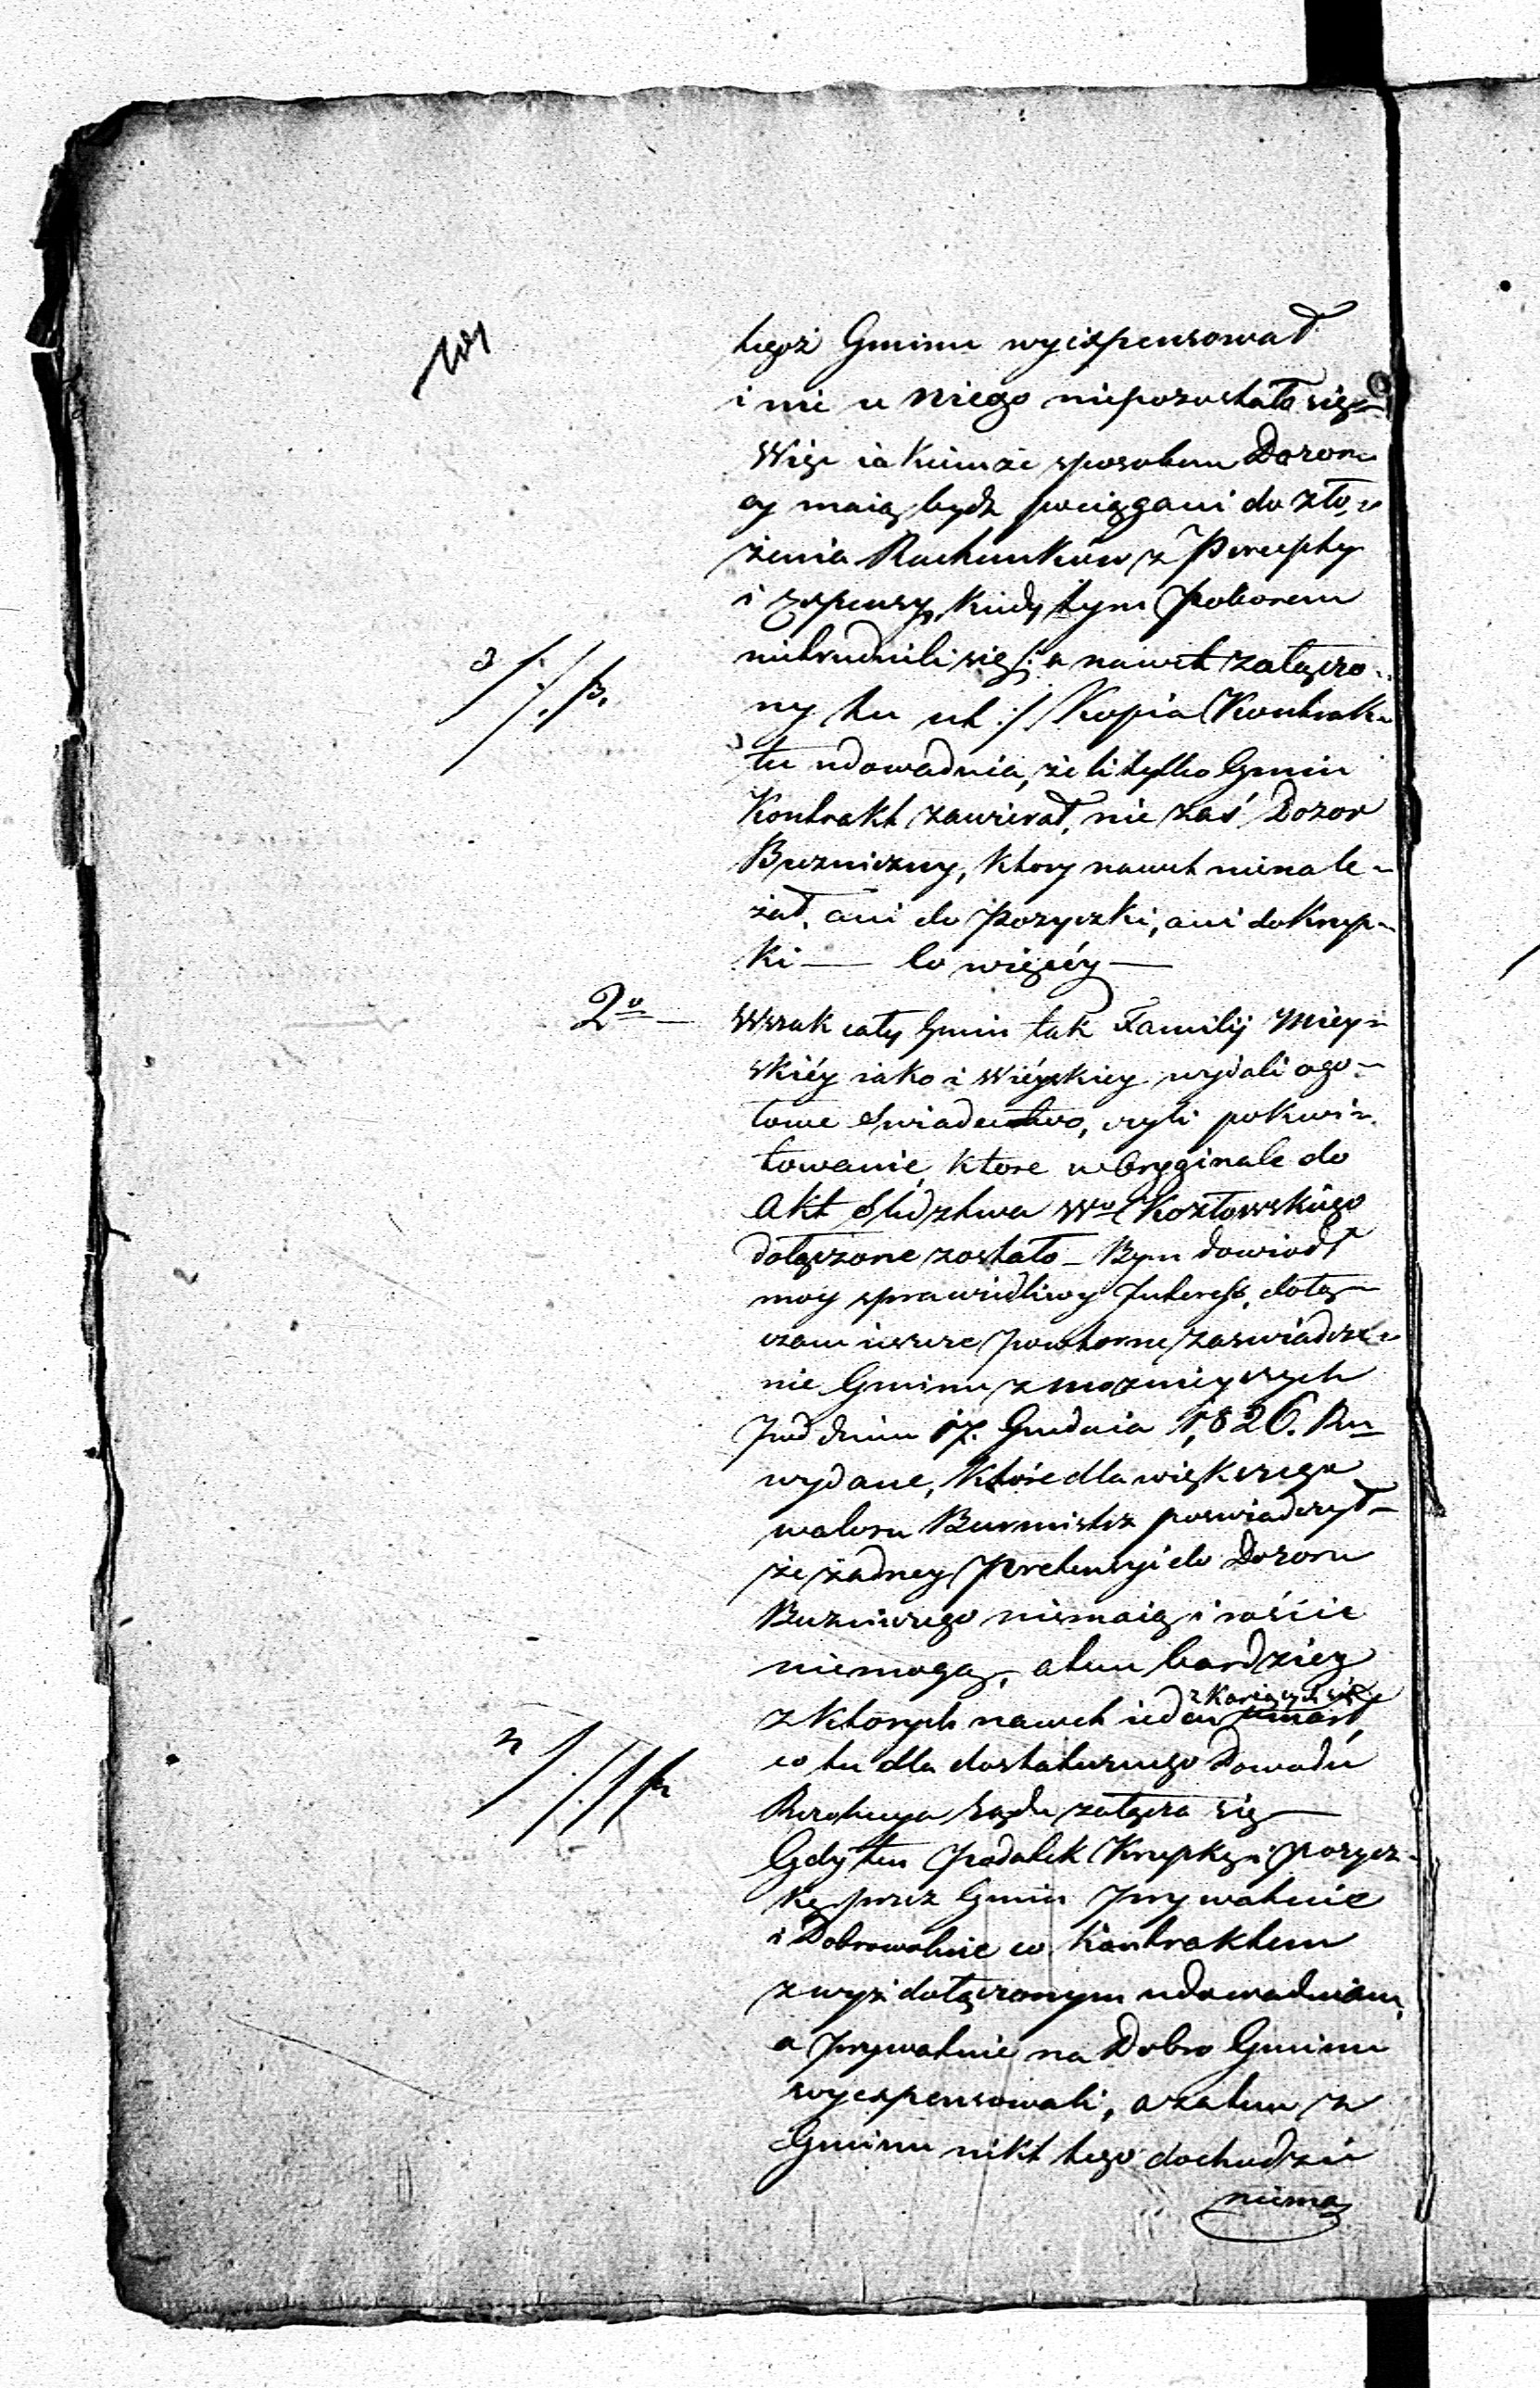 tegoż Gminu wyexpensował
i nic u niego niepozostało się
Więc iakiemże sposobem Dozor
cy maią bydz pociągani do zło„
żenia Rachunków z Percepty
i Expensy, kiedy tym Poborem
nietrudnili się /: a nawet załączo„
ny tu ut :/ Kopia Kontrak„
tu udowadnia, że li tylko Gmin
Kontrakt zawierał, nie zaś Dozor
Bużniczny, ktory nawet nienale„
żał, ani do Pozyczki, ani do Krup„
ki — co więcéy —
2do — Wszak cały Gmin tak Familij Miey„
skiéy iako i Wiéyskiey wydali ogo„
łowe Swiadectwo, czyli pokwi„
towanie, ktore w Oryginale do
Akt Sledztwa Wo Kozłowskiego
dołączone zostało – Bym dowiodł
moy sprawiedliwy Interess, dołą„
czam ieszcze powtorne zaswiadcze„
nie Gminu z moznieyszych
pod dniem 17. Grudnia 1,826. Ru
wydane, Które dla większego
waloru Burmistrz poswiadczył –
że żadney Pretensyi do Dozoru
Buznicznego niemaią i rościc
niemogą, a tem bardziey
z ktorych nawet ieden
z Kariących się
umarł,
co tu dla dostatecznego Dowodu
Sądu załącza się —
Gdy ten Podatek Krupkę i pozycz„
kę przez Gmin prywatnie
i Dobrowolnie co Kontraktem
zwyż dołączonym udowadniam,
a prywatnie na Dobro Gminu
wyexpensowali, a zatem z
Gminu nikt tego dochodzić
niema